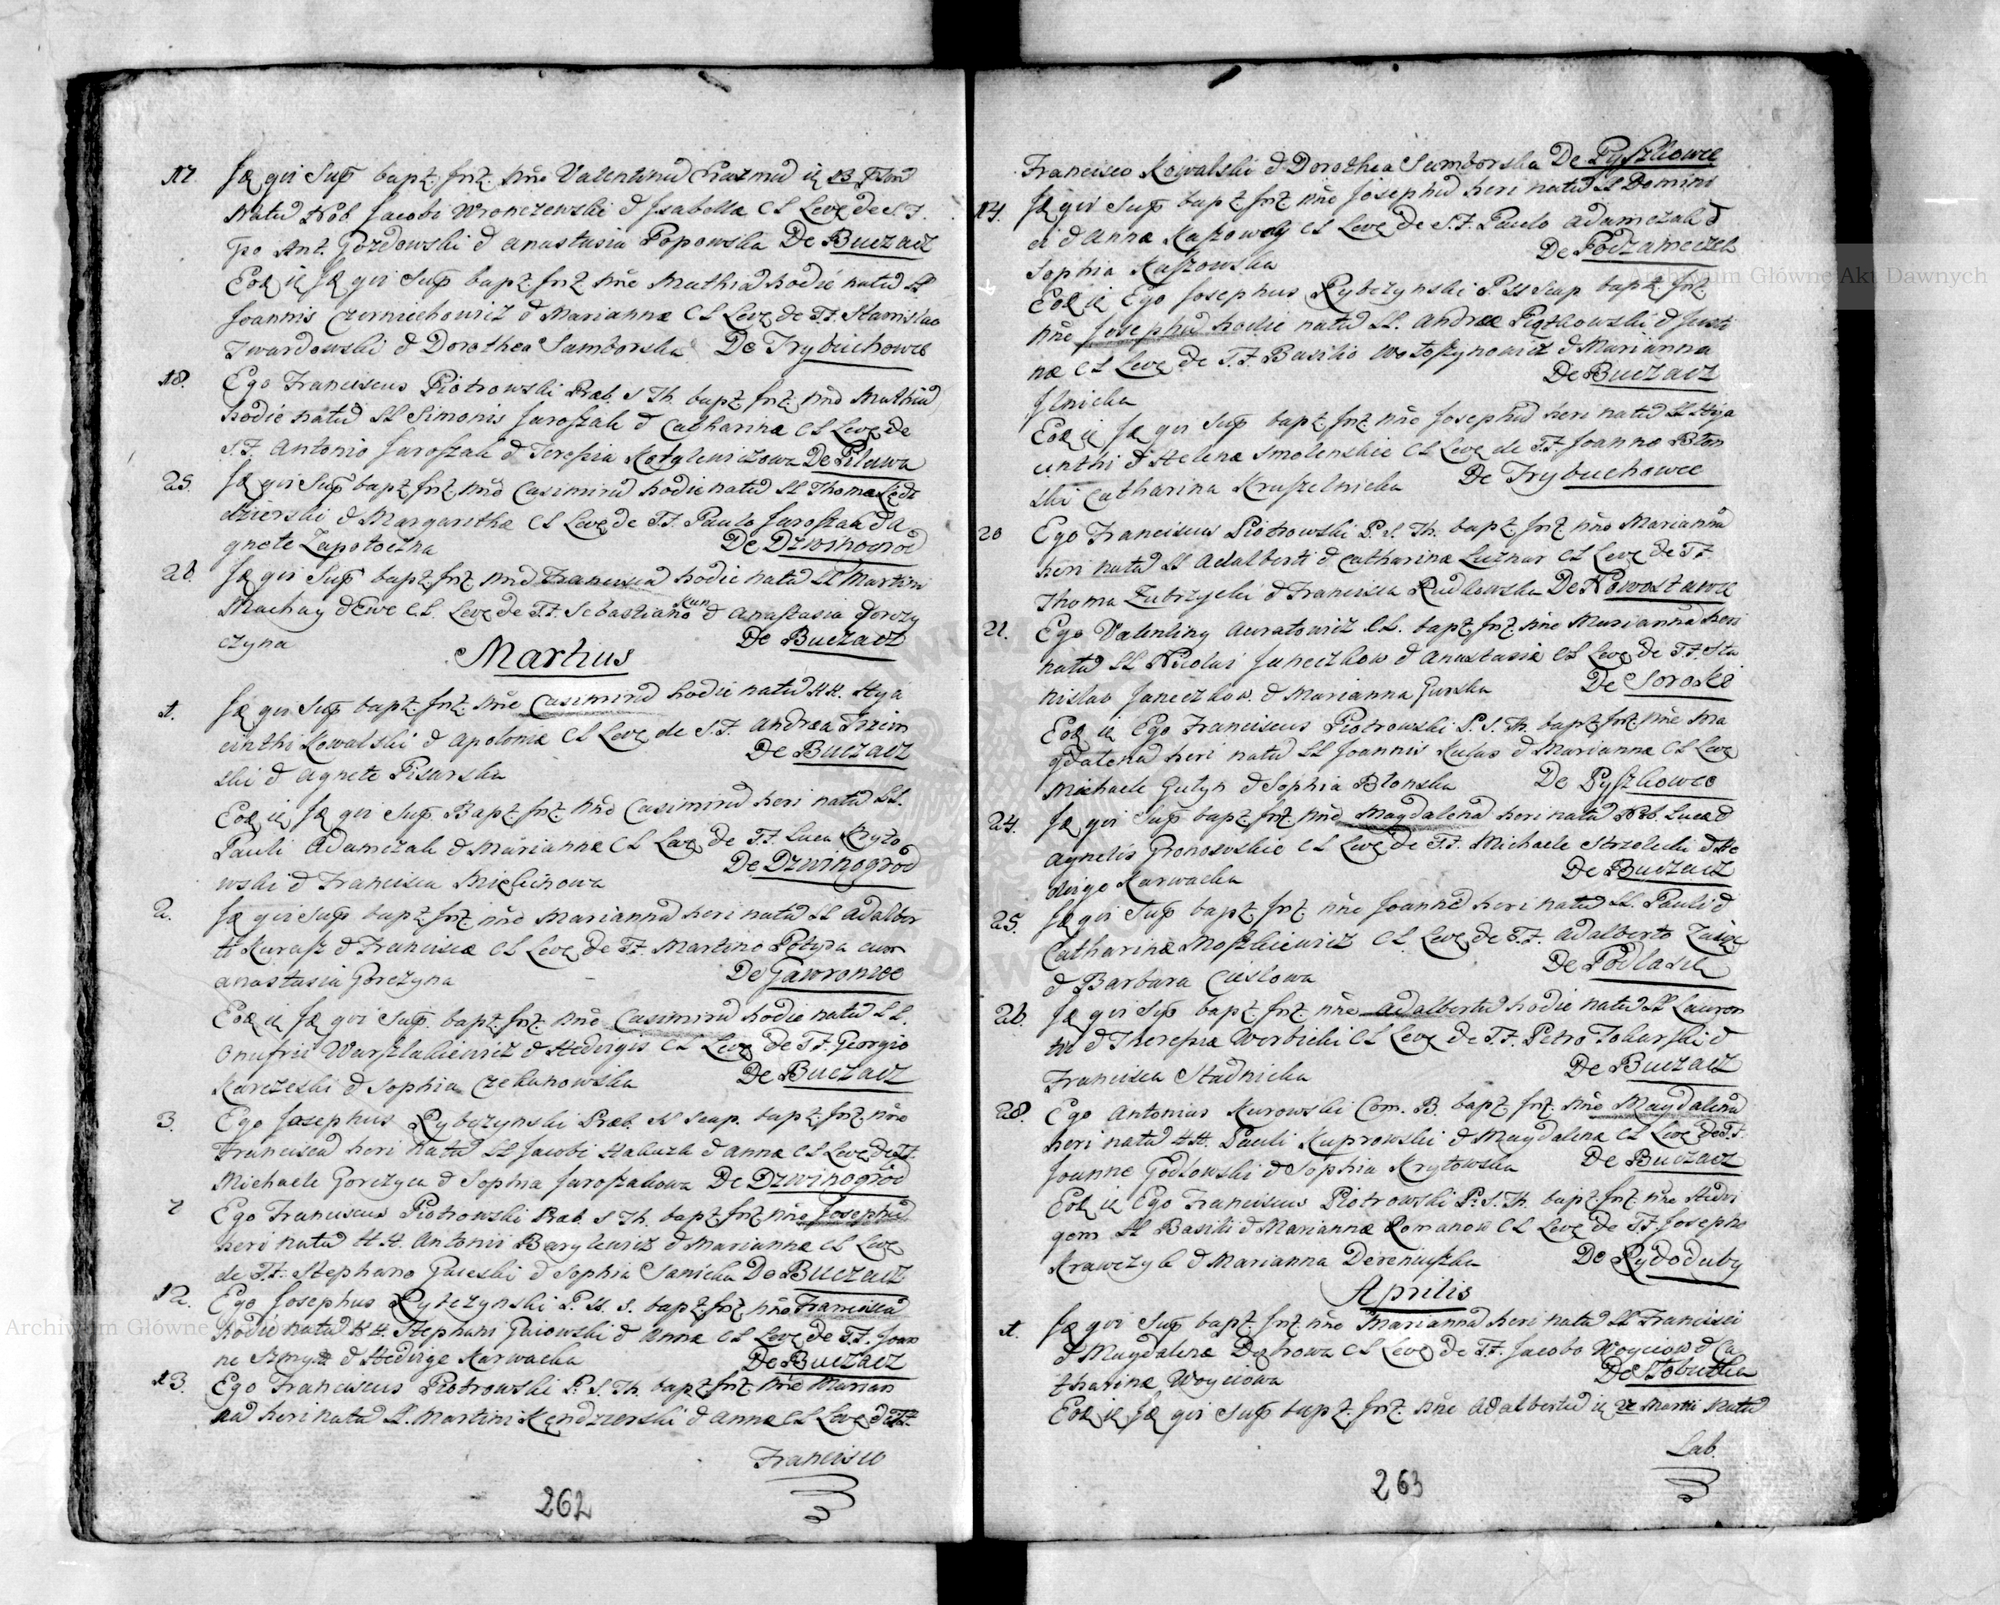 17. Id qui Sup bapt. Inf. nne Valentinu Erazmu ie 13 Febru
natu Nob. Jacobi Wronczewski & Isabella CS Leve de S.F.
Ant. Gozdowski & Anastasia Popowska De Buczacz
Eod ie Id qui Sup bapt Inf nne Mathia hodie natu LL
Joannis Czerniechowicz & Marianna CS Leve de F.F. Stanislao
Twardowski & Dorothea Samborska De Trybuchowce
18. Ego Franciscus Piotrowski Præb. S Th. bapt. Inf. nne Mathiu
hodie natu LL Simonis Jaroszak & Catharinæ CS Leve de
S.F. Antonio Jaroszak & Teresia Kozylewiczowa De Pilawa
25. Id qui Sup bapt Inf nne Casimiru hodie natu LL Thomæ Kędz
dzierski & Margarethæ CS Leve de F.F. Paulo Jaroszak & A
gnete Zapotoczna De Dzwinogrod
26. Id qui Sup bapt Inf nne Francisca hodie natu LL Martini
Machay & Evæ CS. Leve de F.F. Sebastiano & Anastasia Gorczy
czyna De Buczacz
Martius
1. Id qui Sup bapt. Inf. nne Casimiru hodie natu HH. Hyа
cinthi Kowalski & Apoloniæ CS Leve de S.F. Andrea Trzin
ski & Agnete Pisarska De Buczacz
Eod ie Id qui Sup. Bapt Inf nne Casimiru heri natu LL.
Pauli Adamczak & Mariannæ CS Leve de F.F. Luca Kryto
wski & Francisca Michinowa De Dzwinogrod
2. Id qui Sup bapt. Inf nne Marianna heri natu LL Adalber
ti Kurasz & Franciscæ CS Leve de F.F. Martino Potyra cum
Anastasia Gorczyna De Gawronce
Eod ie Id qui Sup. bapt. Inf. nne Casimiru hodie natu LL.
Onufrii Warszlakiewicz & Hedvigis CS Leve de F.F. Georgio
Karczeski & Sophia Czekanowska De Buczacz
3. Ego Josephus Rybczynski Præb. SS Scap. bapt. Inf. nne
Francisca heri natu LL Jacobi Haluzk & Annæ CS Leve de F.F.
Michaele Gorczyca & Sophia Jaroszakowa De Dzwinogrod
7 Ego Franciscus Piotrowski Præb. S Th. bapt. Inf nne Josephu
heri natu HH. Antonii Barylewicz & Mariannæ CS Leve
de F.F. Stephano Gaieski & Sophia Sanicka De Buczacz
12. Ego Josephus Rybczynski P. SS. S. bapt. Inf nne Francisca
hodie natu HH. Stephani Gaiowski & Annæ CS Leve de F.F. Joan
ne Szmyd & Hedvige Karwacka De Buczacz
13. Ego Franciscus Piotrowski P. S. Th. bapt. Inf nne Marian
na heri natu LL. Martini Kendzierski & Annæ CS Leve de F.F.
Francisco
262
Francisco Kowalski & Dorothea Samborska De Pyszkowce
14. Id qui Sup bapt Inf nne Josephu heri natu LL Domini
ci & Anna Kaszowscy CS Leve de S.F. Paulo Adamczak &
Sophia Kaszowska De Podzameczek
Eod ie Ego Josephus Rybczynski P. SS Scap bapt. Inf
nne Josephu hodie natu LL. Andreæ Piątkowski & Justi
næ CS Leve de F.F. Basilio Wołoszynowicz & Marianna
Jlnicka De Buczacz
Eod ie Id qui Sup bapt Inf nne Josephu heri natu LL Hya
cinthi & Helenæ Smolenskie CS Leve de F.F. Joanne Blon
ski Catharina Kruszelnicka De Trybuchowce
20 Ego Franciscus Piotrowski P. S. Th. bapt Inf nne Marianna
heri natu LL Adalberti & Catharinæ Luznar CS Leve de F.F.
Thoma Zubrzycki & Francisca Rudkowska De Nowostawce
21. Ego Valentiny Auratowicz CS. bapt Inf nne Marianna heri
natu LL Nicolai Janeczkow & Anastasiæ CS Leve de F.F. Sta
nislao Janeczkow. & Marianna Gurska De Soroki
Eod ie Ego Franciscus Piotrowski P. S. Th. bapt Inf nne Ma
gdalena heri natu LL Joannis Kulas & Mariannæ CS Leve
Michaele Gutyn & Sophia Blonska De Pyszkowce
24. Id qui Sup bapt Inf nne Magdalena heri natu Nob. Lucæ &
Agnetis Gronowskie CS Leve de F.F. Michaele Strzelecki & He
dvige Karwacka De Buczacz
25. Id qui Sup bapt Inf nne Joanne heri natu LL. Pauli &
Catharinæ Moszkiewicz CS Leve de F.F. Adalberto Zaiąc
& Barbara Cieslowa De Podlasek
26. Id qui Sup bapt Inf nne Adalbertu hodie natu LL Lauren
tii & Theresiæ Werbicki CS Leve de F.F. Petro Tokarski &
Francisca Stadnicka De Buczacz
28. Ego Antonius Kurowski Com. B. bapt Inf. nne Magdalena
heri natu HH. Pauli Kuprowski & Magdalena CS Leve de F.F.
Joanne Godlowski & Sophia Krytowska De Buczacz
Eod ie Ego Franciscus Piotrowski P. S. Th. bapt Inf nne Hedvi
gem LL Basilii & Mariannæ Romanow CS Leve de F.F. Josepho
Krawczyk & Marianna Dereniuszka De Rydoduby
Aprilis
1. Id qui Sup bapt. Inf nne Marianna heri natu LL Francisci
& Magdalenæ Dąbrowa CS Leve de F.F. Jacobo Woyciow & Ca
tharinæ Woyciowa De Zobutka
Eod ie Id qui Sup bapt. Inf. nne Adalbertu ie Martii natu
Lab
263
Archiwum Główne Akt Dawnych
Archiwum Główne